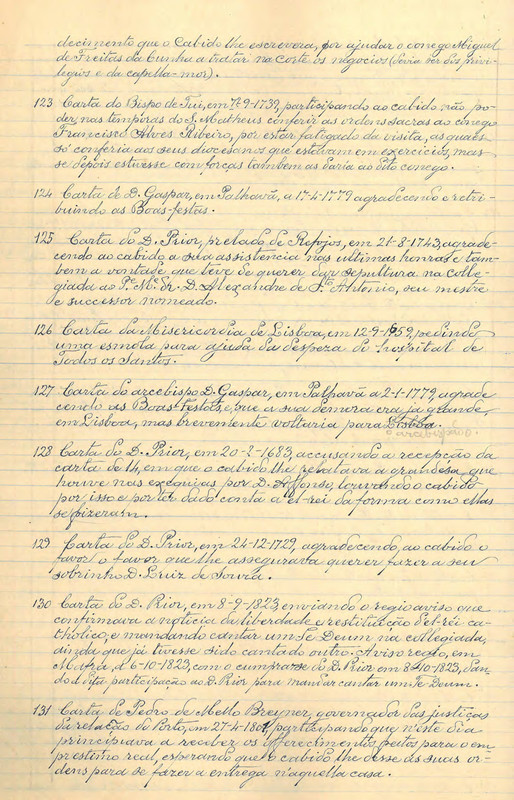 decimento que o Cabido lhe escrevera, por ajudar o conego Miguel
de Freitas da Cunha a tratar na corte os negocios (devia ser dos privi-
legios e da capella-mor).
123 Carta do Bispo de Tui, em 7-9-1739, participando ao cabido não po-
der, nas temporas de S. Matheus conferir as ordens sacras ao conego
Francisco Alves Ribeiro, por estar fatigado da visita, as quaes
só conferia aos seus diocesanos que estavam em exercicios, mas
se depois estivesse com forças tambem as daria ao dito conego.
124 Carta de D. Gaspar, em Palhavã, a 17-4-1779 agradecendo e retri-
buindo as Boas-festas.
125 Carta do D. Prior, prelado de Refojos, em 21-8-1743, agrade-
cendo ao cabido a sua assistencia nas ultimas honras e tam-
bem a vontade que teve de querer dar sepultura na colle-
giada ao Pe. M. Dr. D. Alexandre de Sto Antonio, seu mestre
e successor nomeado.
126 Carta da Misericordia de Lisboa, em 12-9-1659, pedindo
uma esmola para ajuda da despeza do hospital de
Todos os Santos.
127 Carta do arcebispo D. Gaspar, em Palhavã a 2-1-1779, agrade
cendo as Boas Festas, e que a sua demora era já grande
em Lisboa, mas brevemente voltaria para Lisboa.
o arcebispado.
128 Carta do D. Prior, em 20-2-1683, accusando a recepção da
carta de 14, em que o cabido lhe relatava a grandesa que
houve nas exequias por D. Affonso, louvando o cabido
por isso e por ter dado conta a el-rei da forma como ellas
se fizeram.
129 Carta do D. Prior, em 24-12-1729, agradecendo, ao cabido o
favor o favor que lhe assegurava querer fazer a seu
sobrinho D. Luiz de Souza.
130 Carta do D. Prior, em 8-9-1823, enviando o regio aviso que
confirmava a noticia da liberdade e restituição d'el-rei ca-
tholico, e mandando cantar um Te Deum na collegiada,
ainda que já tivesse sido cantado outro. Aviso regio, em
Mafra, a 6-10-1823, com o cumpra-se do D. Prior em 8-10-1823, dan-
do d'esta participação ao D. Prior para mandar cantar um Te Deum.
131 Carta de Pedro de Mello Breyner, governador das justiças
da relação do Porto, em 27-4-1801, participando que n'este dia
principiava a receber os offerecimentos feitos para o em
prestimo real, esperando que o cabido lhe desse as suas or-
dens para se fazer a entrega n'aquella casa.